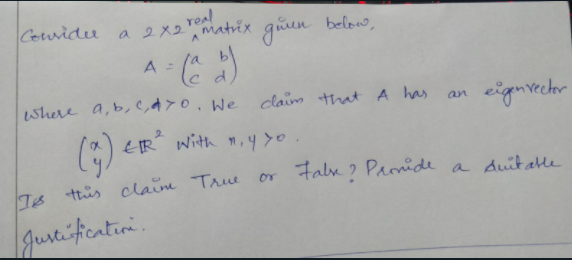 Consider a 2×2 real matrix given below,
A = (a b
c d)
where a,b,c,d>0. We claim that A has an eigenvector
(x
y) ∈ ℝ² with x,y>0.
Is this claim True or False? Provide a suitable
justification.